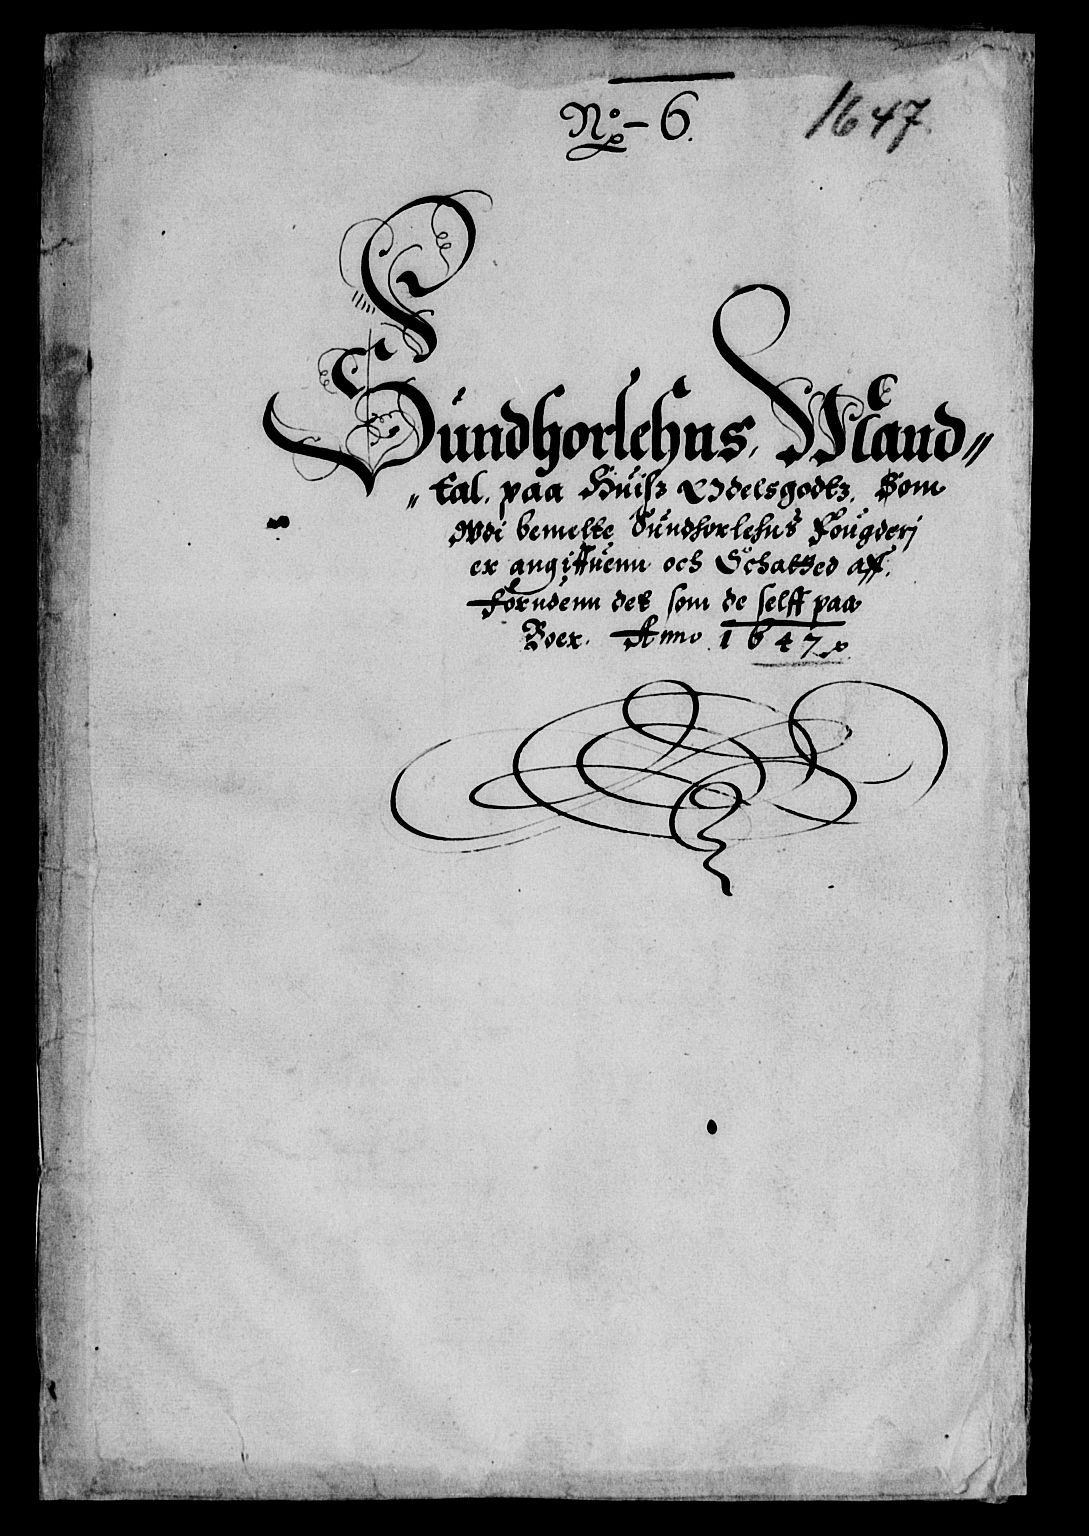 No 6.
1647.
Sundhorlehns, Mand„
„tal, paa Huisz Odelsgodtz, Som
Wdi bemelte Sundhorlehns Fougderj
er angiffuenn och Schatted aff,
Forudenn det som de selff paa
Boer. Anno 1647.